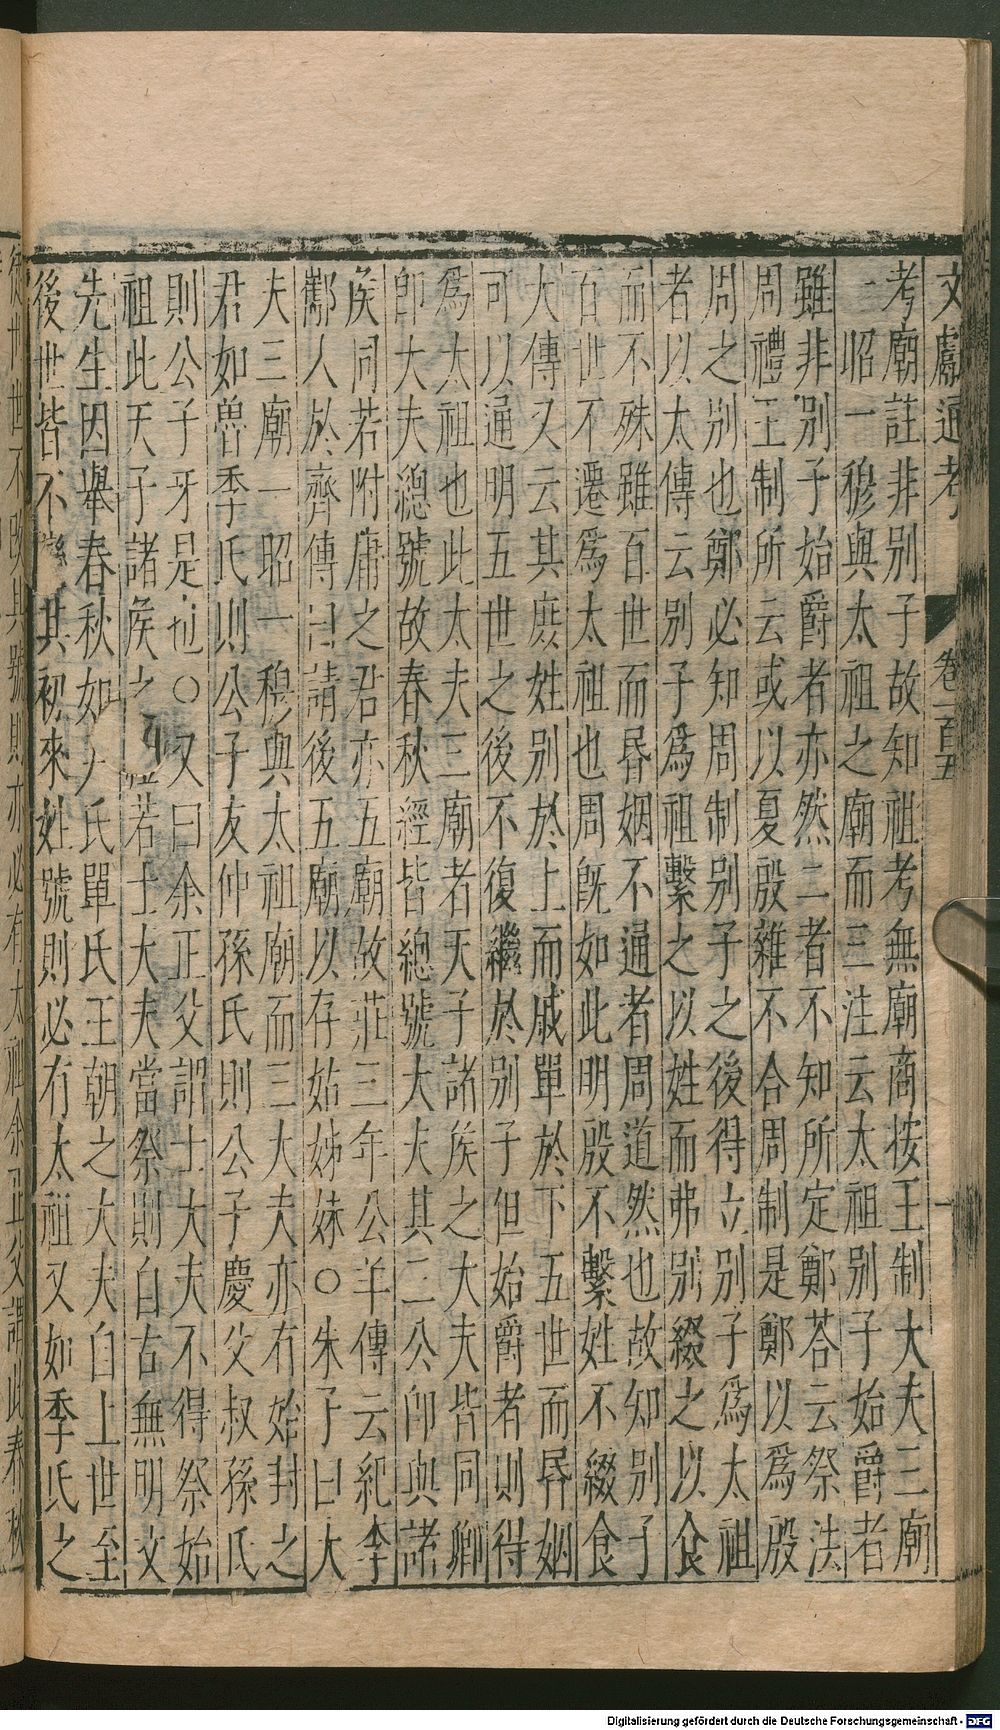 文獻通考 卷一百五
考廟註非別子故知祖考無廟商按王制大夫三廟
一昭一穆與太祖之廟而三注云太祖別子始爵者
雖非別子始爵者亦然二者不知所定鄭荅云祭法
周禮王制所云或以夏殷雜不合周制是鄭以爲殷
周之別也鄭必知周制別子之後得立別子爲太祖
者以大傳云別子爲祖繫之以姓而弗別綴之以食
而不殊雖百世而昏姻不通者周道然也故知別子
百世不遷爲太祖也周旣如此明殷不繫姓不綴食
大傳又云其庶姓別於上而戚單於下五世而昏姻
可以通明五世之後不復繼於別子但始爵者則得
爲太祖也此大夫三廟者天子諸侯之大夫皆同卿
卽大夫總號故春秋經皆總號大夫其二公卽與諸
侯同若附庸之君亦五廟故莊三年公羊傳云紀季
酅人於齊傳曰請後五廟以存姑姊妹○朱子曰大
夫三廟一昭一穆與太祖廟而三大夫亦有始封之
君如魯季氏則公子友仲孫氏則公子慶父叔孫氏
則公子牙是也○又曰余正父謂士大夫不得祭始
祖此天子諸侯之禮若士大夫當祭則自古無明文
先生因舉春秋如尹氏單氏王朝之大夫自上世至
後世皆不其初來姓號則必有太祖又如季氏之
徒世世不改其號則亦必有太祖余正父謂此春秋
Digitalisierung gefördert durch die Deutsche Forschungsgemeinschaft - DFG